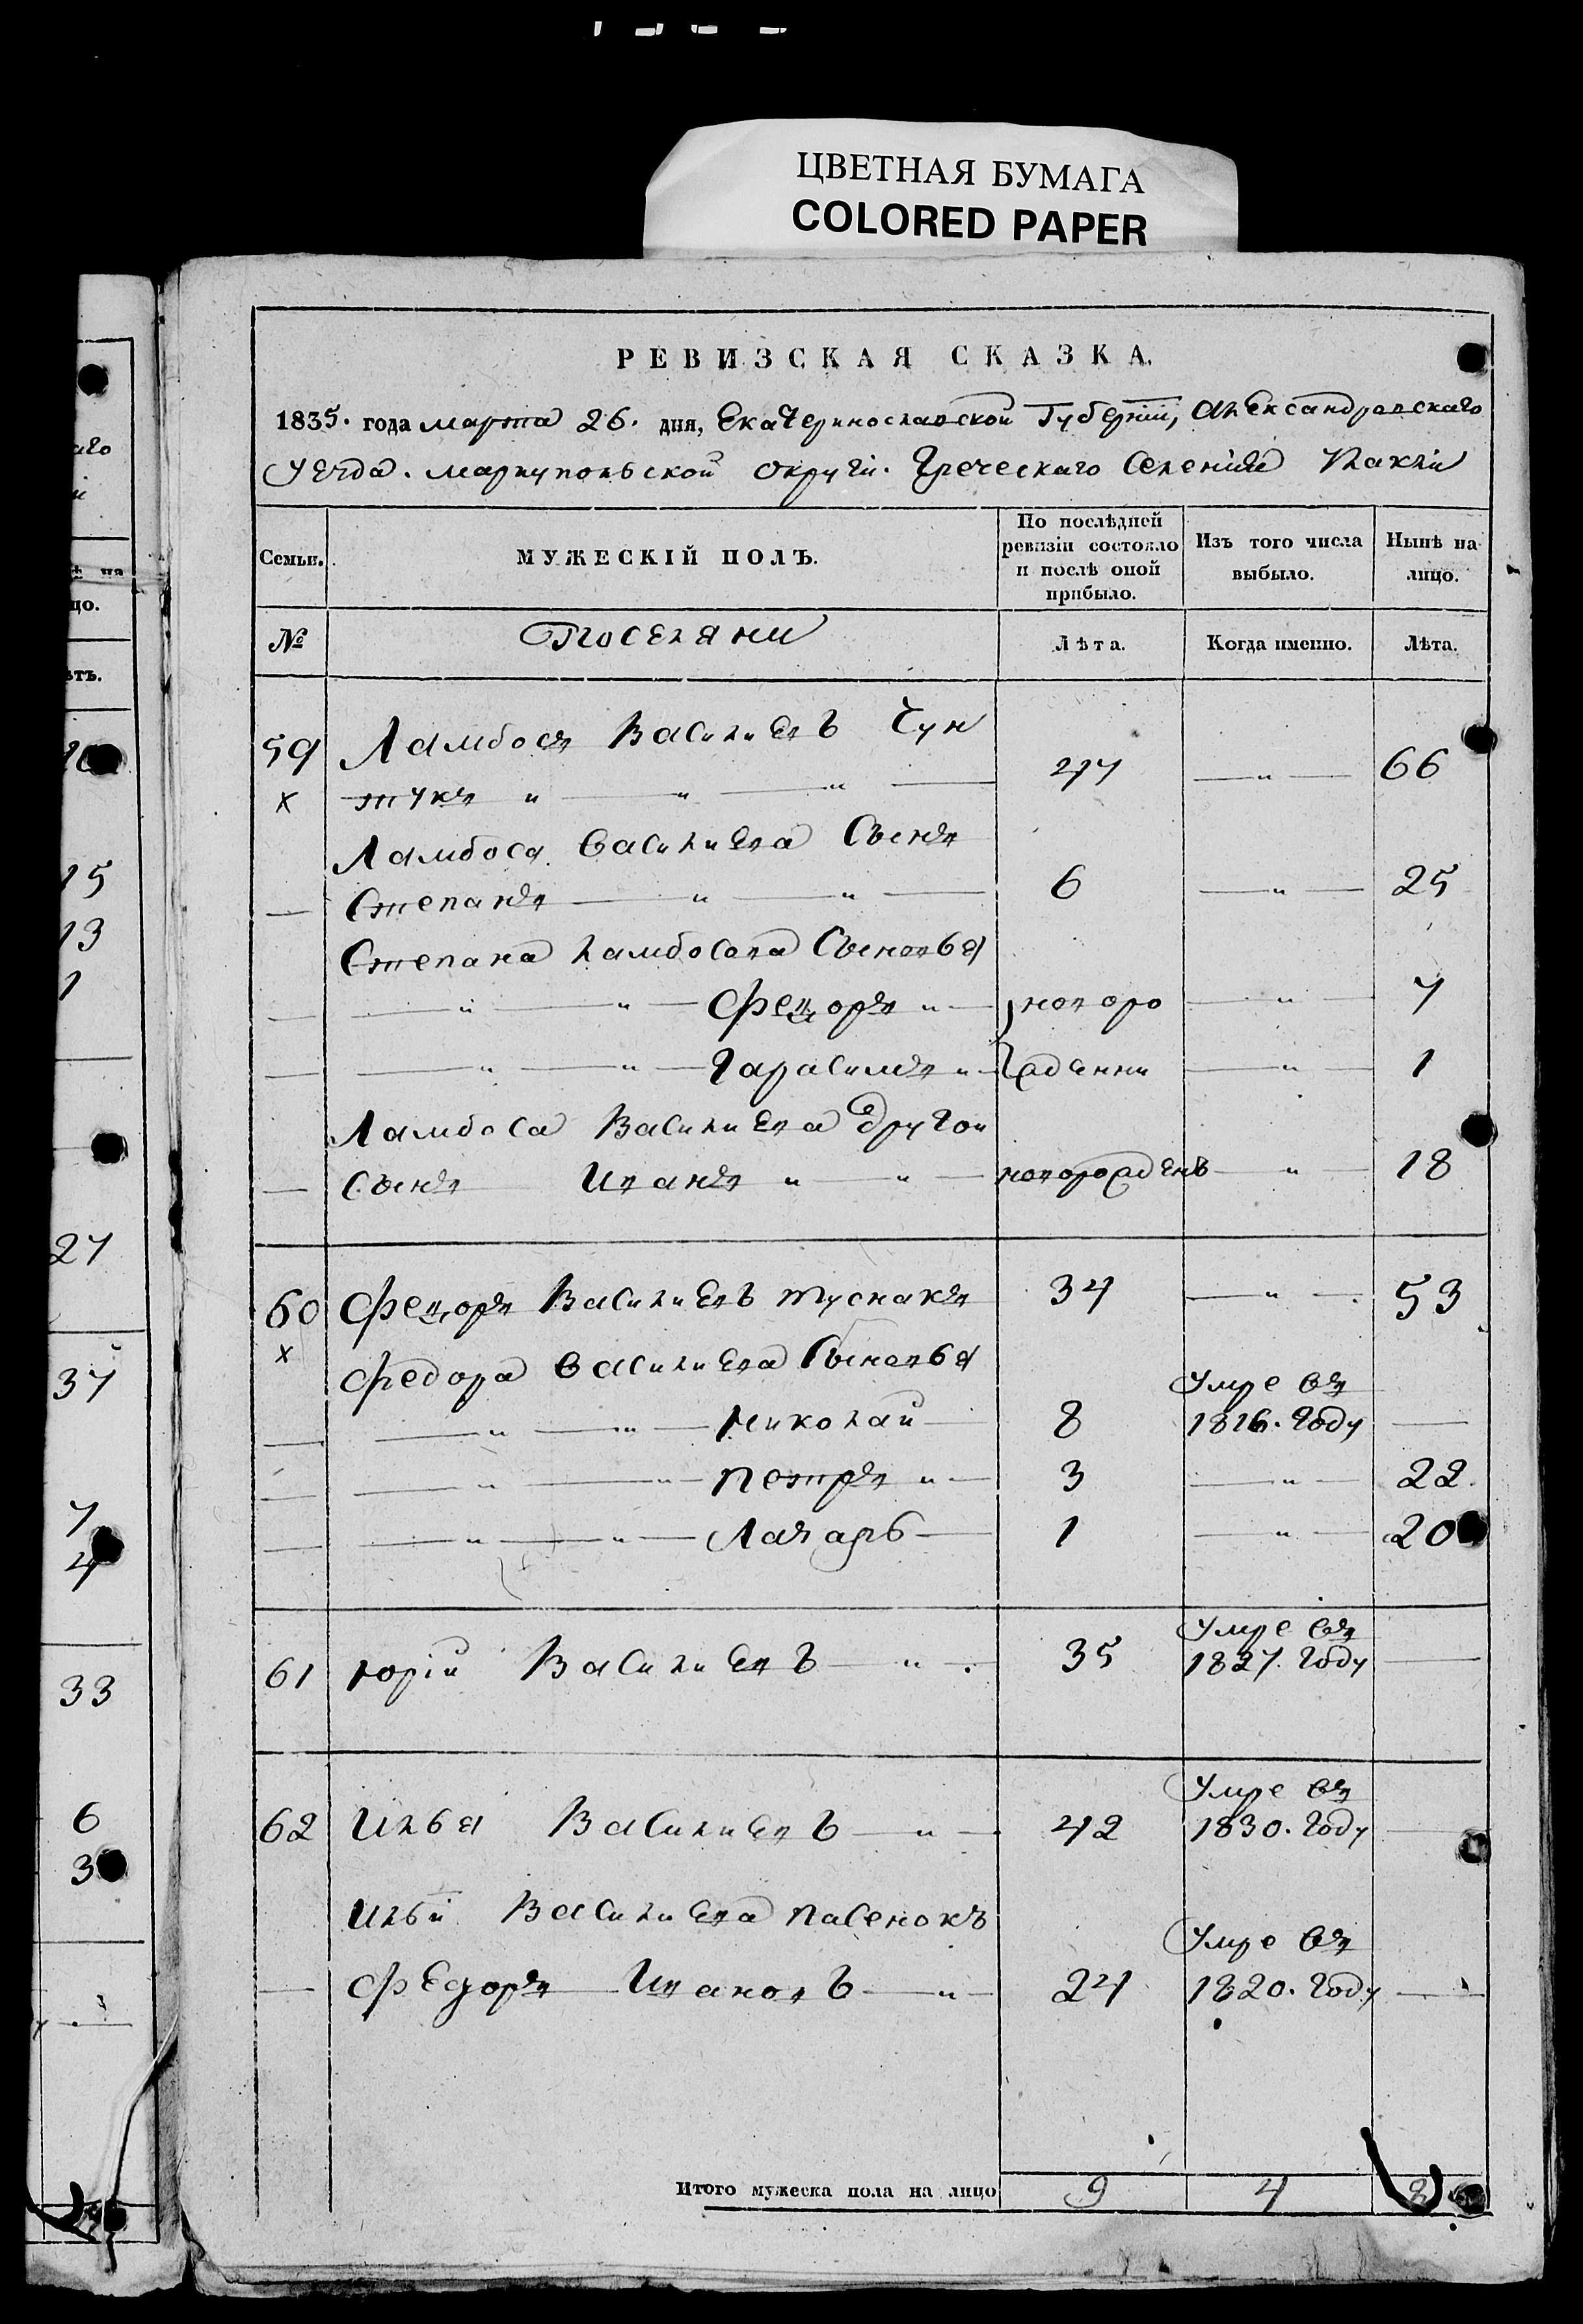 ЦВЕТНАЯ БУМАГА
COLORED PAPER
РЕВИЗСКАЯ СКАЗКА.
1835. года марта 26. дня, Екатеринославской Губернїи, Александровскаго
уезда. мариупольской округи. Греческаго Селения
Семьи. МУЖЕСКІЙ ПОЛЪ. По послѣдней ревизіи состояло и послѣ оной прибыло. Изъ того числа выбыло. Нынѣ на лицо.
№ Поселяни Лѣта. Когда именно. Лѣта.
59 Ламбосъ Василиевъ Чун
х тукъ " " " 47 " 66
Ламбоса василиева Сынъ
Степанъ " " 6 " 25
Степана ламбосова Сыновья
" " Федоръ " новоро " 7
" " Гарасимъ " жденни " 1
Ламбоса Василиева другой
Сынъ Иванъ " " новорожденъ " 18
60 Федоръ Василиевъ туснакъ 34 " 53
х Федора василиева Сыновья
" " Николай 8 Умре въ 1816. году
" " петръ " 3 " 22.
" " Лазарь 1 " 20
61 юрїй Василиевъ " . 35 Умре въ 1827. году
62 Илья Василиевъ " 42 Умре въ 1830. году
Ильи Василиева пасенокъ
Федоръ Ивановъ " 24 Умре въ 1820. году
Итого мужеска пола на лицо 9 4 8
15
13
1
27
37
7
4
33
6
3